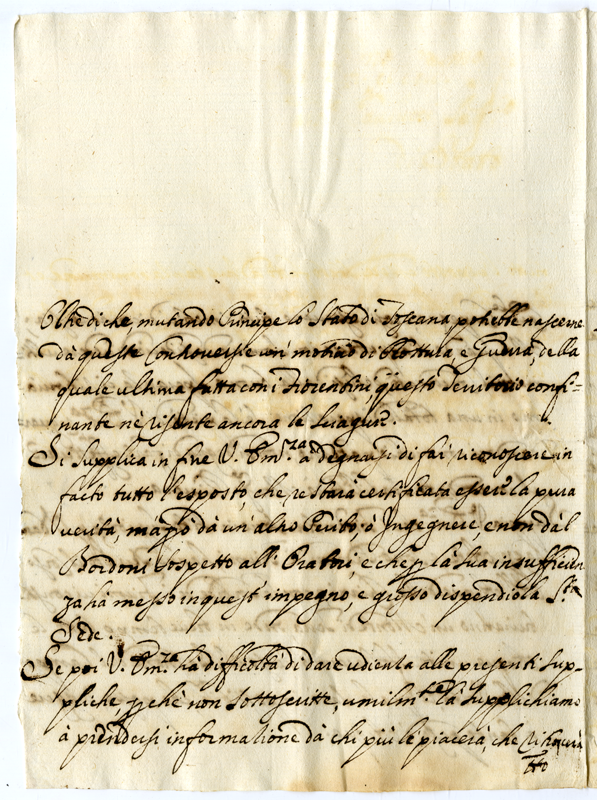 Oltre di che, mutando Principe lo Stato di Toscana potrebbe nascerne
dà queste Controversie un' motivo di Rottura, e Guerra, della
quale ultima fatta con i Fiorentini, questo Territorio confi=
nante nè risente ancora le sciagure.
Si supplica in fine V. Em.za à degnarsi di far riconoscere in
facto tutto l'esposto, che restarà certificata esser la pura
verità, ma però dà un' altro Perito, ò Ingegnere, e non dàl
Bordoni sospetto all' Oratori, e che p la sua insufficien
za hà messo in quest' impegno, e grosso dispendio la S.ta
Sede.
Se poi V. Em.za hà difficoltà di dare udienza alle presenti sup-
pliche, p chè non sottoscritte, umilm.te la supplichiamo
à prendersi informatione dà chi più le piacerà, che ritrovarà
tto